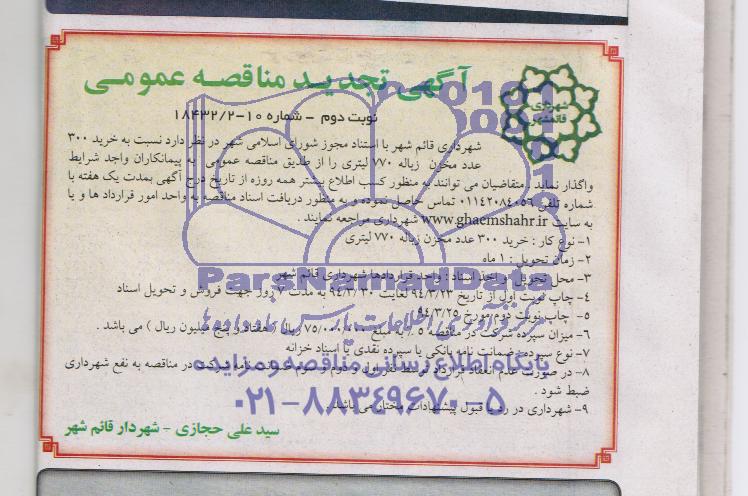 آگهی تجدید مناقصه عمومی
شهرداری
قائمشهر
نوبت دوم - شماره ۱۰-۱۸۴۳۲/۲
شهرداری قائم شهر با استناد مجوز شورای اسلامی شهر در نظر دارد نسبت به خرید ۳۰۰
عدد مخزن زباله ۷۷۰ لیتری را از طریق مناقصه عمومی به پیمانکاران واجد شرایط
واگذار نماید . متقاضیان می توانند به منظور کسب اطلاع بیشتر همه روزه از تاریخ درج آگهی بمدت یک هفته با
شماره تلفن ۰۱۱۴۲۰۸۴۰۵۶ تماس حاصل نموده و به منظور دریافت اسناد مناقصه به واحد امور قرارداد ها و یا
به سایت www.ghaemshahr.ir شهرداری مراجعه نمایند .
۱- نوع کار : خرید ۳۰۰ عدد مخزن زباله ۷۷۰ لیتری
۲- زمان تحویل : ۱ ماه
۳- محل تحویل و اخذ اسناد : واحد قراردادها شهرداری قائم شهر
۴- چاپ نوبت اول از تاریخ ۹۴/۳/۲۳ لغایت ۹۴/۳/۳۰ به مدت ۷ روز جهت فروش و تحویل اسناد
۵- چاپ نوبت دوم مورخ ۹۴/۳/۲۵
۶- میزان سپرده شرکت در مناقصه ۵٪ به مبلغ ۷۵/۰۰۰/۰۰۰ ریال ( هفتاد و پنج میلیون ریال ) می باشد .
۷- نوع سپرده : ضمانت نامه بانکی یا سپرده نقدی یا اسناد خزانه
۸- در صورت عدم انعقاد قرارداد توسط نفر اول و دوم و سوم ضمانت نامه شرکت در مناقصه به نفع شهرداری
ضبط شود .
۹- شهرداری در رد یا قبول پیشنهادات مختار می باشد.
سید علی حجازی - شهردار قائم شهر
ParsNamadData
مرکز فرآوری اطلاعات پارس نماد داده ها
پایگاه اطلاع رسانی مناقصه و مزایده
۰۲۱-۸۸۳۴۹۶۷۰-۵